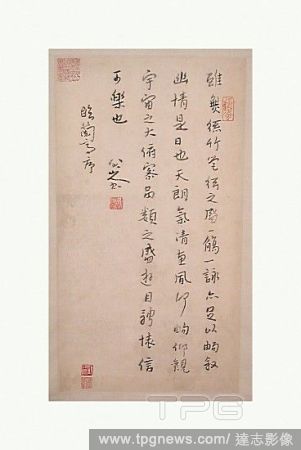 雖無絲竹管弦之盛一觴一詠亦足以暢敘
幽情是日也天朗氣清惠風和暢仰觀
宇宙之大俯察品類之盛遊目騁懷信
可樂也
八大山人
臨蘭亭序
TPG
www.tpgnews.com/達志影像